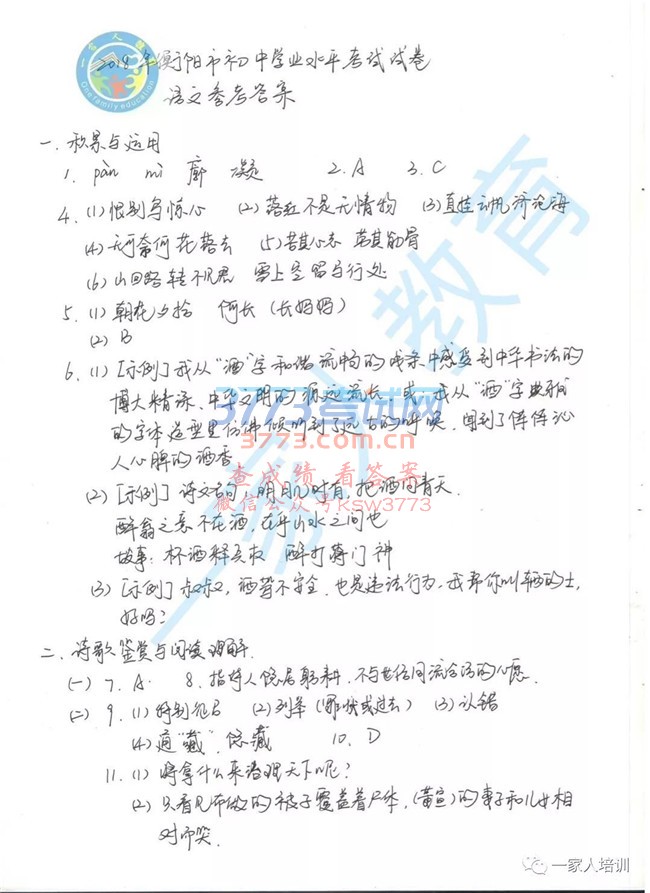 2018年衡阳市初中学业水平考试试卷
语文参考答案
一.积累与运用
1. pàn mì 廓 凝 2.A 3.C
4. (1)恨别鸟惊心 (2)落红不是无情物 (3)直挂云帆济沧海
(4)无可奈何花落去 (5)苦其心志 劳其筋骨
(6)山回路转不见君 雪上空留马行处
5. (1)朝花夕拾 阿长(长妈妈)
(2) B
6. (1) [示例]我从“酒”字和谐流畅的线条中感受到中华书法的
博大精深、中华文明的源远流长。或:我从“酒”字典雅
的字体造型里仿佛倾听到了远古的呼唤,闻到了阵阵沁
人心脾的酒香
(2) [示例] 诗文名句,明月几时有,把酒问青天.
醉翁之意不在酒,在乎山水之间也
故事:杯酒释兵权 醉打蒋门神
(3) [示例] 叔叔,酒驾不安全,也是违法行为,我帮你叫辆的士,
好吗?
二.诗歌鉴赏与阅读理解.
(一) 7. A. 8.指诗人隐居躬耕,不与世俗同流合污的心愿.
(二) 9. (1)特别 (2)到 (或过去) (3)认错
(4)通“藏”,隐藏 10. D
11. (1)将拿什么来治理天下呢?
(2)只看见布做的被子覆盖着尸体,(黄宣)的妻子和儿女相
对而哭.
一家人教育
一家人教育
Onefamily education
3773考试网
3773.com.cn
查成绩 看答案
微信公众号ksw3773
一家人培训